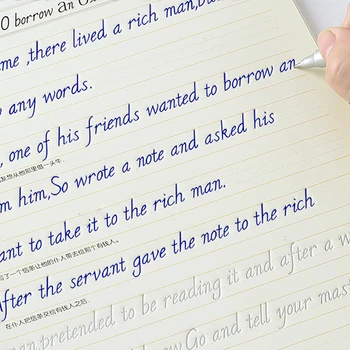 O borrow an
me ,there lived a rich man,bu
any words.
, one of his friends wanted to borrow an
友想从他那里借一头牛
m him,So wrote a note and asked his
ant to take it to the rich man.
了一个信条让他的仆人带去给那个有钱人。
After the servant gave the note to the rich
在仆人把信条交给有钱人之后,
man,pretended to be reading it and after a w
now.Go and tell your mas